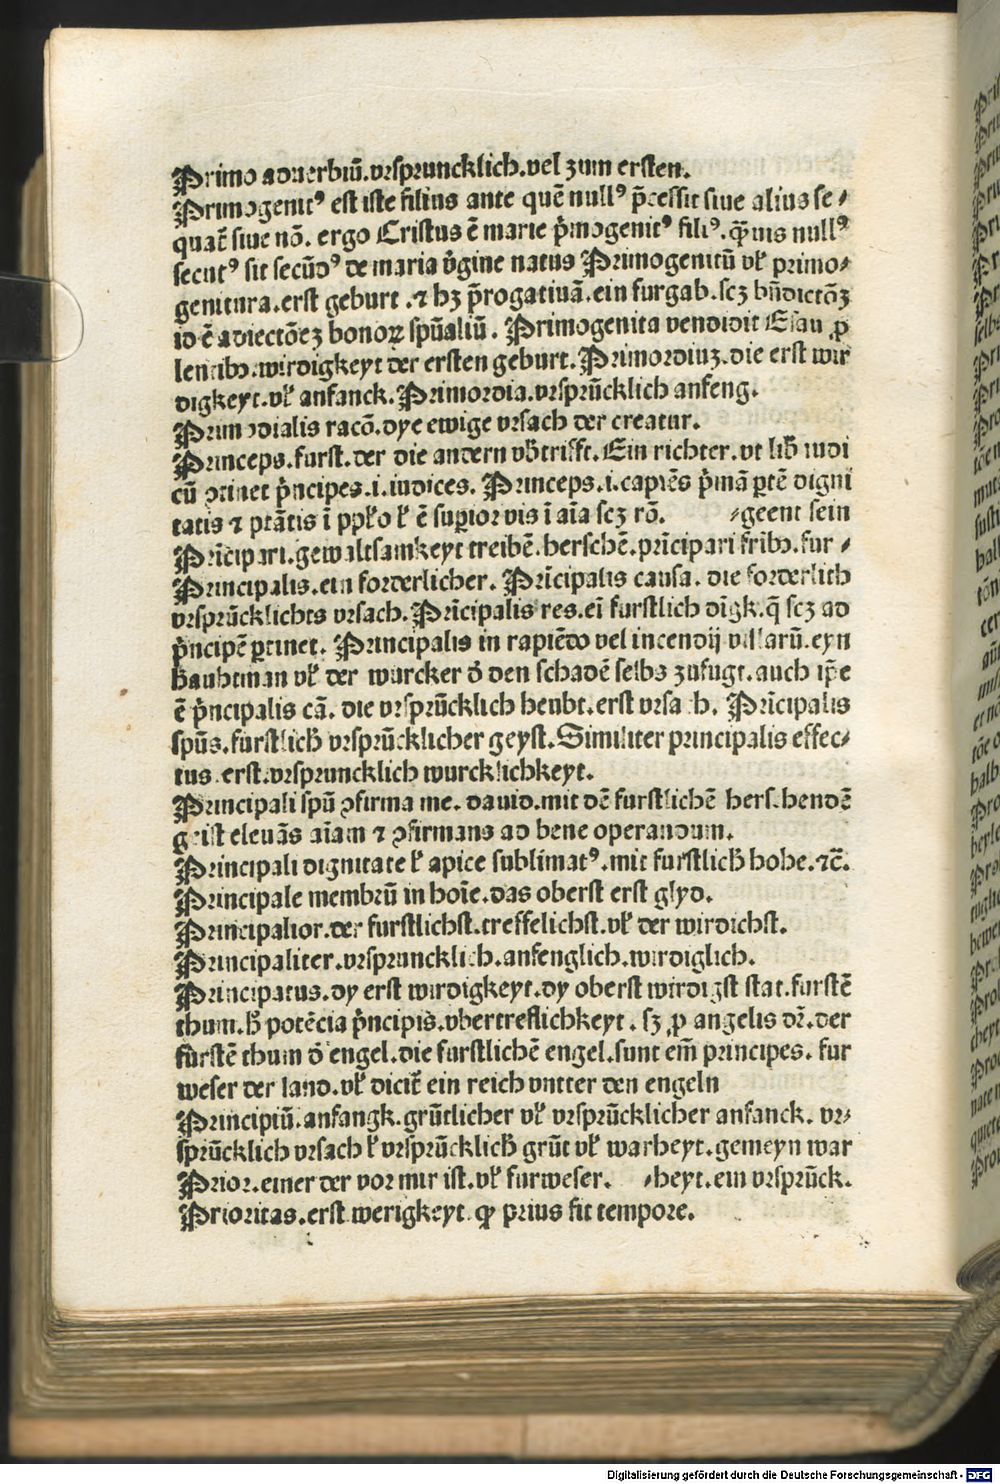 Primo aduerbiū.vrspruncklich.vel zum ersten.
Primogenitꝰ est iste filius ante quē nullꝰ p̄cessit siue alius se⸗
quat̄ siue nō. ergo Cristus ē marie p̄mogenitꝰ filiꝰ.q̄uis nullꝰ
secutꝰ sit secūdꝰ de maria v̄gine natus Primogenitū vł primo⸗
genitura.erst geburt .⁊ hꝫ p̄rogatiuā.ein furgab.scꝫ bn̄dictōꝫ
id ē adiectōeꝫ bonoꝝ spūaliū. Primogenita vendidit Esau ꝓ
lentibꝫ.wirdigkeyt der ersten geburt. Primordiuꝫ.die erst wir
digkeyt.vł anfanck. Primordia.vrsprūcklich anfeng.
Primordialis racō.dye ewige vrsach der creatur.
Princeps.furst.der die andern vb̄trifft. Ein richter.vt lib̄ iudi
cū ꝯtinet p̄ncipes.i.iudices. Princeps.i.capiēs p̄mā ꝑtē digni
tatis ⁊ ptāt̄is ī ppło ł ē supior vis ī aīa scꝫ rō. ⸗geent sein
Prīcipari.gewaltsamkeyt treibē.herschē.prīcipari fribꝫ.fur⸗
Principalis.ein forderlicher. Prīcipalis causa. die forderlich
vrsprūcklichts vrsach. Prīcipalis res.eī furstlich dīgk.q̄ scꝫ ad
p̄ncipē ꝑtinet. Principalis in rapiēdo vel incendij villarū.eyn
Haubtman vł der wurcker d̄ den schadē selbs zufugt.auch ip̄e
ē p̄ncipalis cā. die vrsprūcklich heubt.erst vrsach. Prīcipalis
spūs.furstlich̄ vrsprūcklicher geyst. Similiter principalis effec⸗
tus.erst.vrspruncklich wurcklichkeyt.
Principali spū ꝯfirma me. dauid.mit dē furstlichē herschendē
geist eleuās aīam ⁊ ꝯfirmans ad bene operandum.
Principali dignitate ł apice sublimatꝰ.mit furstlich̄ hohe.⁊c̄.
Principale membrū in hoīe.das oberst erst glyd.
Principalior.der furstlichst.treffelichst.vł der wirdichst.
Principaliter.vrspruncklich.anfenglich.wirdiglich.
Principatus.dy erst wirdigkeyt.dy oberst wirdigst stat.furstē
thum.h̄ potēcia p̄ncipis.vbertreflichkeyt. sꝫ ꝓ angelis dr̄.der
fürstē thum d̄ engel.die furstlichē engel.sunt em̄ principes. fur
weser der land.vł dicit̄ ein reich vntter den engeln
Principiū.anfangk.grūtlicher vł vrsprūcklicher anfanck. vr⸗
sprūcklich vrsach ł vrsprūcklich̄ grūt vł warheyt.gemeyn war
Prior.einer der vor mir ist.vł furweser. ⸗heyt.ein vrsprūck.
Prioritas.erst werigkeyt ꝙ prius fit tempore.
Digitalisierung gefördert durch die Deutsche Forschungsgemeinschaft - DFG